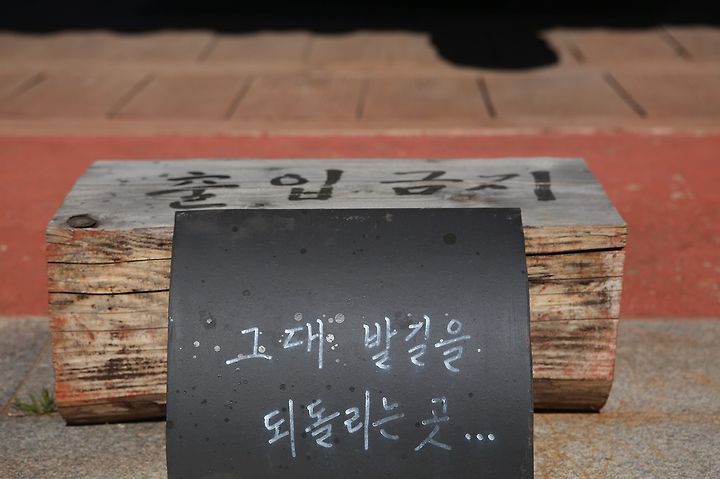 출입금지
그대 발길을
되돌리는 곳...